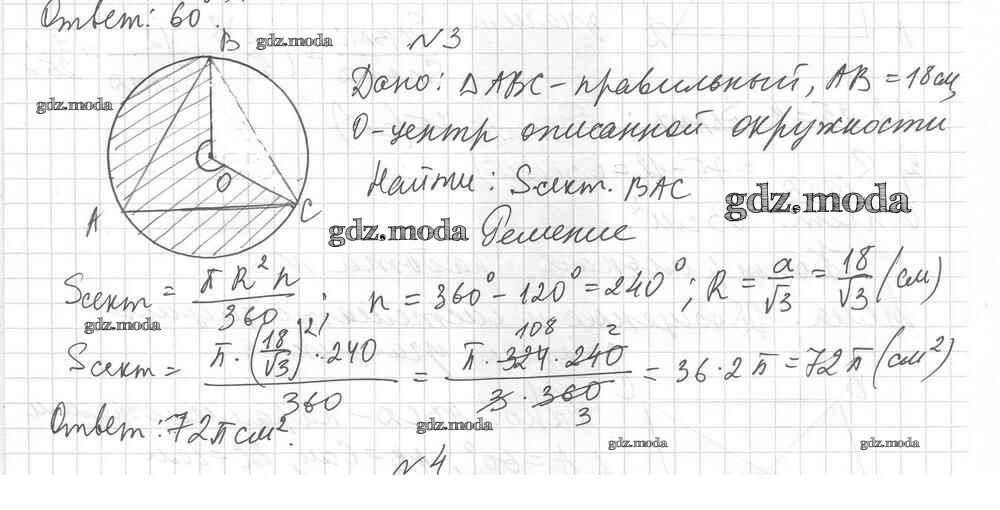 Ответ: 60°.
N3
B
gdz.moda
Дано: △ABC - правильный, AB = 18 см
gdz.moda
O - центр описанной окружности
O
Найти: Sсект. BAC
gdz.moda
A
C
gdz.moda
Решение
Sсект = πR²n / 360 ; n = 360° - 120° = 240°; R = a/√3 = 18/√3 (см)
gdz.moda
Sсект = π · (18/√3)² · 240 / 360 = π · 324 · 240 / 3 · 360 = 36 · 2π = 72π (см²)
108 2
3
Ответ: 72π см².
gdz.moda
gdz.moda
gdz.moda
N4